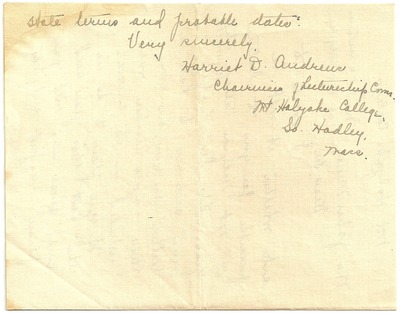 state terms and probable dates.
Very sincerely,
Harriet D. Andrews
Chairman of Lectureship Com.
Mt Holyoke College,
So. Hadley,
Mass.